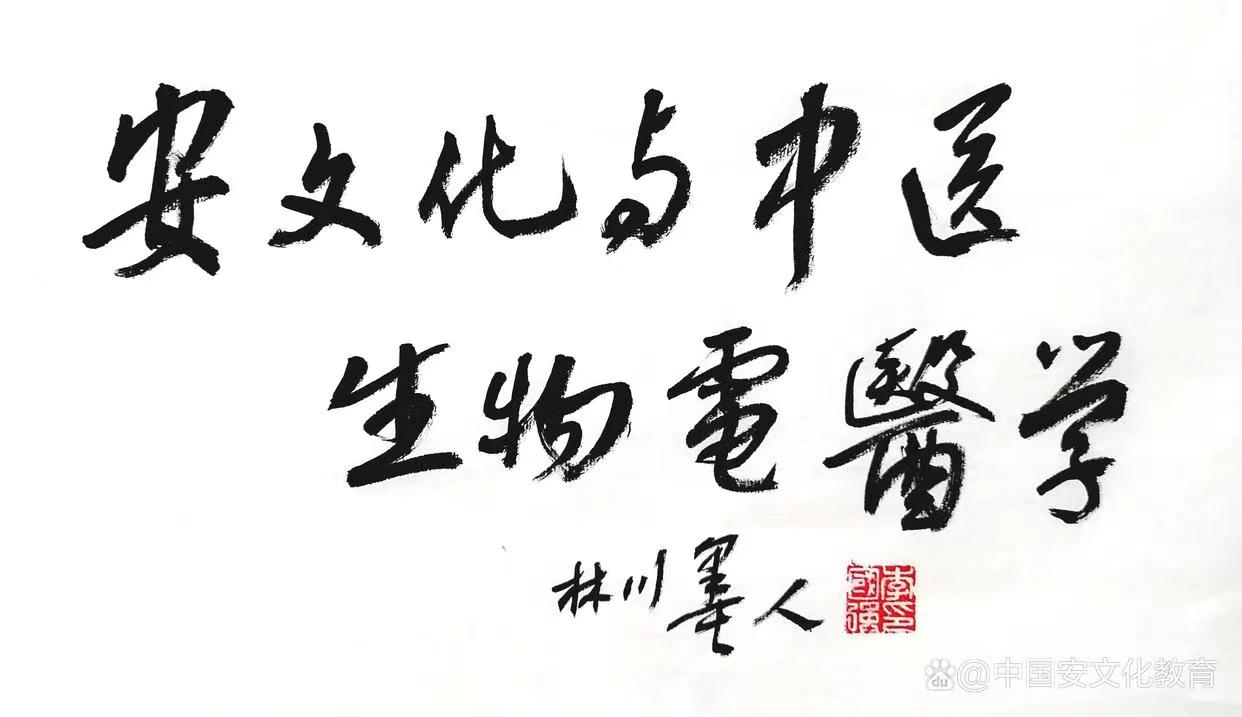 安文化与中医
生物電醫学
林川墨人
李印國強
du @中国安文化教育